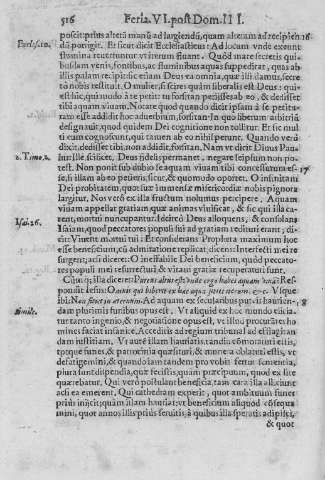 516 Feria. VI. post Dom. III.
poscit prius alterā manū ad largiendū, quam alteram ad recipien
16
dū porrigit. Et sicut dicit Ecclesiasticus: Ad locum vnde exeunt
Eccles. 1.
flumina reuertuntur vt iterum fluant. Quòd mare secretis qui-
busdam venis, fontibus, ac fluminibus aquas suppedirat, quas ab
illis palam recipit: sic etiam Deus ea omnia, quæ illi damus, secre
tò nobis restituit. O mulier, si scires quàm liberalis est Deus: qui
est hic, qui modò à te petit: tu forsitan petijsses ab eo, & dedisset
tibi aquam viuam. Notare quod quando dicit ipsam à se petitu-
ram esse addidit hoc aduerbium, forsitan. In quo liberum arbitriū
designauit, quod quidem Dei cognitione non tollitur. Et sic mul
ti eum cognoscunt, qui tamen ab eo nihil petunt. Quando verò
dixit, dedisset tibi, non addidit, forsitan. Nam vt dicit Diuus Pau-
2. Timo. 2.
lus: Ille scilicet, Deus fidelis permanet, negare seipsum non po-
test. Non ponit sub dubio se aquam viuam tibi concessurum es-
17
se, si illam ab eo petieris, sicut, & quomodo oportet. O infinitam
Dei probitatem, quot suæ immensæ misericordiæ nobis pignora
largitur. Nos verò ex illa fructum nolumus percipere. Aquam
viuam appellat gratiam, quæ animas viuificat, & sic qui illa ca-
rent, mortui nuncupantur. Ideircò Deus alloquens, & consolans
Isai. 26.
Isaiam, quod peccatores per suos ad gratiam redituri erant, di-
cit: Viuent mortui tui: Et considerans Propheta maximum hoc
esse beneficium, & cū admiratione replicat, dicens: Interfecti mei re
surgent; acsi diceret: O ineffabile Dei beneficium, quòd peccato-
res populi mei resurrecturi & vitam gratiæ recuperaturi sunt.
Cùm q; illa diceret: Puteus altus est: vnde ergo habes aquam viuā? Res-
pondit Iesus: Omnis qui biberit ex hac aqua sitiet iterum. &c. Vsque
ibi: Non sitiet in æternum. Ad aquam ex secularibus puteis haurien-
8
dam plurimis funibus opus est. Vt
Simile.
tur tanto ingenio, & negotiatione opus est, vt illud procurātes ho
mines faciat insanire. Acceditis ad regium tribunal ad effiagitan
dam iustitiam. Vt autē illam hauriatis, tandiu commoraturi estis,
totque funes, & patrocinia quæsituri, & munera oblaturi estis, vt
defatigemini, & quando iam tandem pro votis fertur sententia,
plura funt dispendia, quæ fecistis, quàm præcipuum, quod ex lite
quærebatur. Qui verò postulant beneficia, tam cara illa alliciunt
acsi ea emerent. Qui cathedram experit, quot ambituum funes
prius inijcit; quàm illam hauriat: vt beneficium aliquod consequa
mini, quot annos illis prius seruitis, à quibus illa speratis adipisci,
& quot